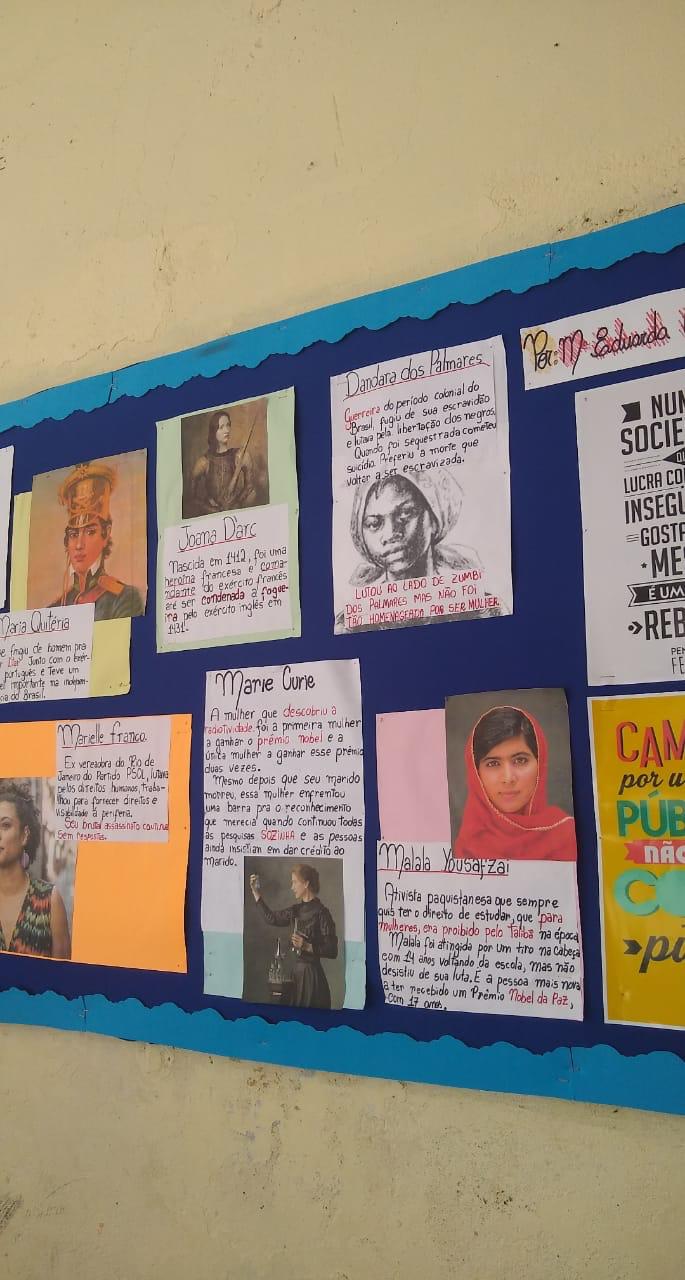 Maria Quitéria
se fingiu de homem pra
Junto com o exér-
português e teve um
importante na indepen-
cia do Brasil.
Joana D'arc
Nascida em 1412, foi uma
heroína francesa e coma-
ndante do exército francês
até ser condenada a fogue-
ira pelo exército inglês em
1431.
Dandara dos Palmares
Guerreira do período colonial do
Brasil, fugiu de sua escravidão
e lutava pela libertação dos negros.
Quando foi sequestrada cometeu
suicídio. Preferiu a morte que
voltar a ser escravizada.
LUTOU AO LADO DE ZUMBI
DOS PALMARES MAS NÃO FOI
TÃO HOMENAGEADA POR SER MULHER.
Por: Mª Eduarda
NUM
SOCIE
LUCRA CO
INSEGU
GOSTA
ME
É UM
REB
Marielle Franco.
Ex vereadora do Rio de
Janeiro do Partido PSOL, lutava
pelos direitos humanos, traba-
lhou para fornecer direitos e
visibilidade à periferia.
Seu brutal assassinato continua
sem respostas.
Marie Curie
A mulher que descobriu a
radiotividade, foi a primeira mulher
a ganhar o prêmio nobel e a
única mulher a ganhar esse prêmio
duas vezes.
Mesmo depois que seu marido
morreu, essa mulher enfrentou
uma barra pra o reconhecimento
que merecia quando continuou todas
as pesquisas SOZINHA e as pessoas
ainda insistiam em dar crédito ao
marido.
Malala Yousafzai
Ativista paquistanesa que sempre
quis ter o direito de estudar, que para
mulheres, era proibido pelo Talibã na época
Malala foi atingida por um tiro na cabeça
com 14 anos voltando da escola, mas não
desistiu de sua luta. E a pessoa mais nova
a ter recebido um Prêmio Nobel da Paz,
com 17 anos.
CAM
por u
PÚB
NÃO
CO
pi